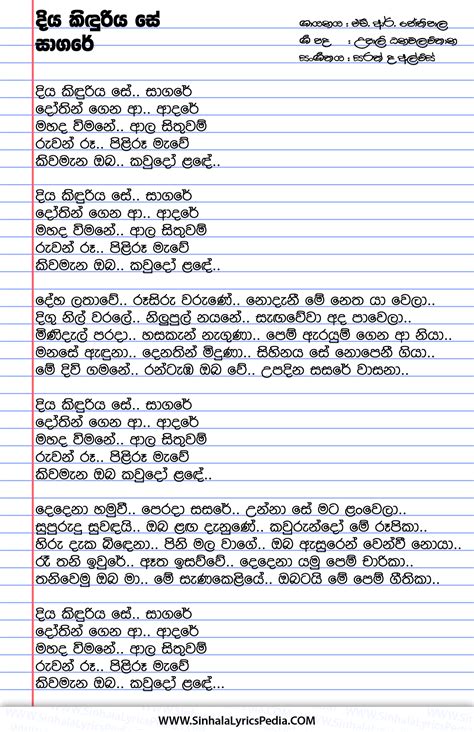 දිය කිඳුරිය සේ
සාගරේ
ගායනය : එච්. ආර්. ජෝතිපාල
ගී පද : උපාලි ධනවලවිතාන
සංගීතය : සරත් ද අල්විස්
දිය කිඳුරිය සේ.. සාගරේ
දෝතින් ගෙන ආ.. ආදරේ
මහද විමනේ.. ආල සිතුවම්
රුවන් රූ.. පිළිරූ මැවේ
කිවමැන ඔබ.. කවුදෝ ළඳේ...
දිය කිඳුරිය සේ.. සාගරේ
දෝතින් ගෙන ආ.. ආදරේ
මහද විමනේ.. ආල සිතුවම්
රුවන් රූ.. පිළිරූ මැවේ
කිවමැන ඔබ.. කවුදෝ ළඳේ..
දේහ ලතාවේ.. රූසිරු වරුණේ.. නොදැනී මේ නෙත යා වෙලා..
දිගු නිල් වරලේ.. නිලුපුල් නයනේ.. සැඟවේවා අද පාවෙලා..
මිණිදැල් පරදා.. හසකැන් නැගුණා.. පෙම් ඇරයුම් ගෙන ආ නියා..
මනසේ ඇඳුනා.. දෙනතින් මිදුණා.. සිහිනය සේ නොපෙනී ගියා..
මේ දිවි ගමනේ.. රන්ටැඹ ඔබ වේ.. උපදින සසරේ වාසනා..
දිය කිඳුරිය සේ.. සාගරේ
දෝතින් ගෙන ආ.. ආදරේ
මහද විමනේ.. ආල සිතුවම්
රුවන් රූ.. පිළිරූ මැවේ
කිවමැන ඔබ කවුදෝ ළඳේ..
දෙදෙනා හමුවී.. පෙරදා සසරේ.. උන්නා සේ මට ළංවෙලා..
සුපුරුදු සුවඳයි.. ඔබ ළඟ දැනුණේ.. කවුරුන්දෝ මේ රූපිකා..
හිරු දැක බිඳෙනා.. පිනි මල වාගේ.. ඔබ ඇසුරෙන් වෙන්වී නොයා..
රෑ තනි ඉවුරේ.. ඈත ඉසව්වේ.. දෙදෙනා යමු පෙම් චාරිකා..
තනිවෙමු ඔබ මා.. මේ සැණකෙළියේ.. ඔබටයි මේ පෙම් ගීතිකා..
දිය කිඳුරිය සේ.. සාගරේ
දෝතින් ගෙන ආ.. ආදරේ
මහද විමනේ.. ආල සිතුවම්
රුවන් රූ.. පිළිරූ මැවේ
කිවමැන ඔබ.. කවුදෝ ළඳේ...
WWW.SinhalaLyricsPedia.COM